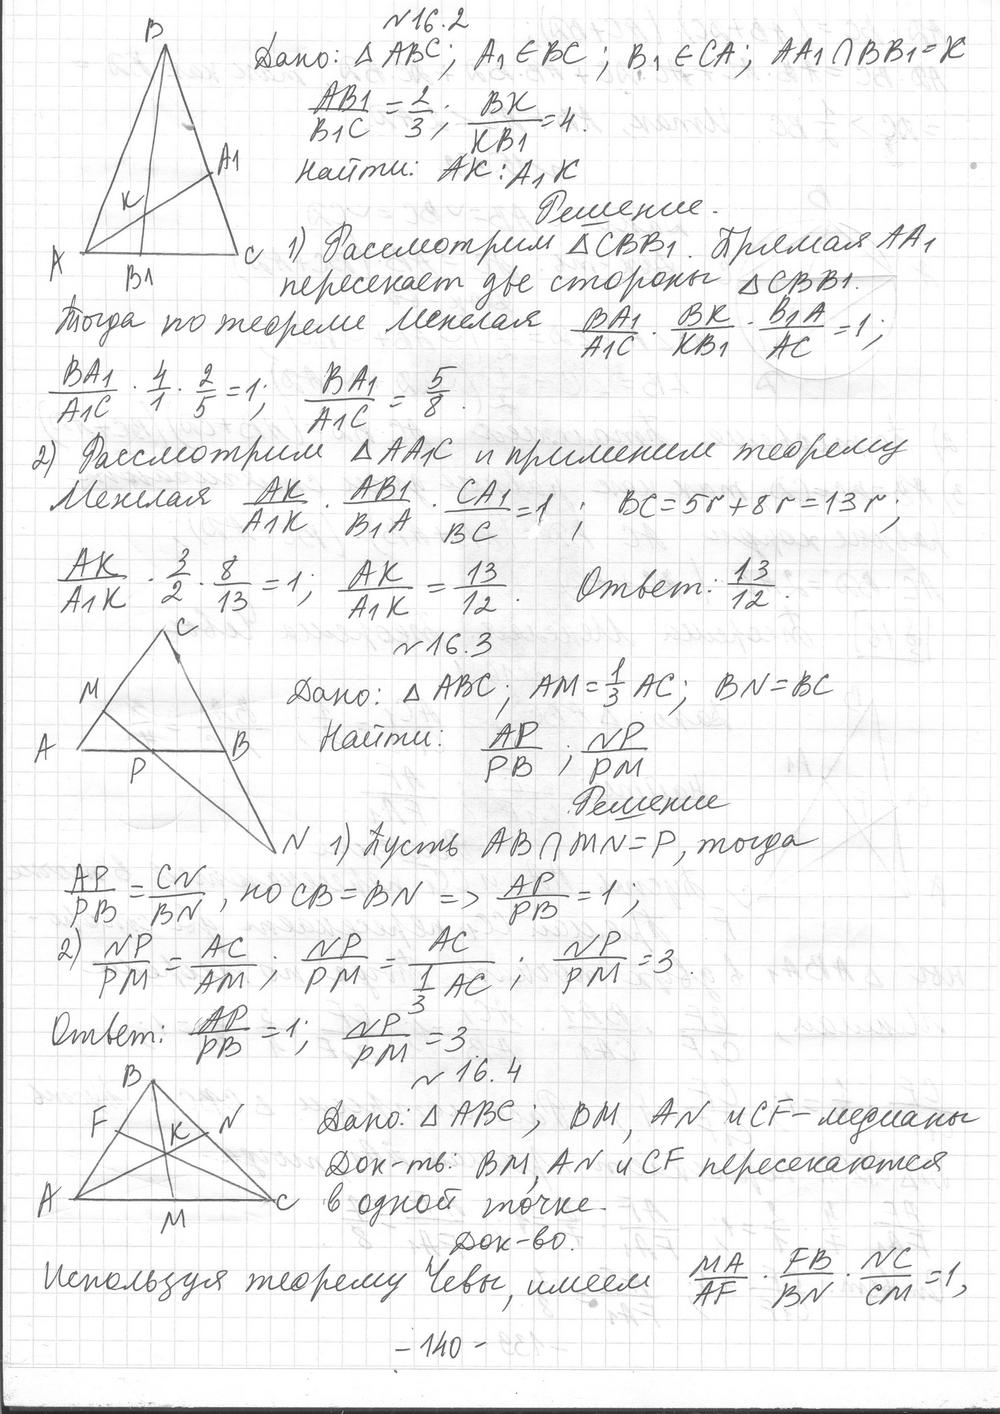 №16.2
Дано: △ABC; A₁∈BC; B₁∈CA; AA₁∩BB₁=K
AB₁/B₁C = 2/3; BK/KB₁ = 4.
Найти: AK:A₁K
Решение.
B
A₁
K
A
B₁
C
1) Рассмотрим △CBB₁. Прямая AA₁
пересекает две стороны △CBB₁.
Тогда по теореме Менелая BA₁/A₁C · BK/KB₁ · B₁A/AC = 1;
BA₁/A₁C · 4/1 · 2/5 = 1; BA₁/A₁C = 5/8.
2) Рассмотрим △AA₁C и применим теорему
Менелая AK/A₁K · AB₁/B₁A · CA₁/BC = 1; BC=5r+8r=13r;
AK/A₁K · 3/2 · 8/13 = 1; AK/A₁K = 13/12. Ответ: 13/12.
№16.3
Дано: △ABC; AM=1/3 AC; BN=BC
Найти: AP/PB; NP/PM
Решение
C
M
A
P
B
N
1) Пусть AB∩MN=P, тогда
AP/PB = CN/BN, но CB=BN => AP/PB = 1;
2) NP/PM = AC/AM; NP/PM = AC/(1/3 AC); NP/PM = 3.
Ответ: AP/PB = 1; NP/PM = 3
№16.4
B
F
K
N
A
M
C
Дано: △ABC; BM, AN и CF-медианы
Док-ть: BM, AN и CF пересекаются
в одной точке.
Док-во.
Используя теорему Чевы, имеем MA/AF · FB/BN · NC/CM = 1,
-140-